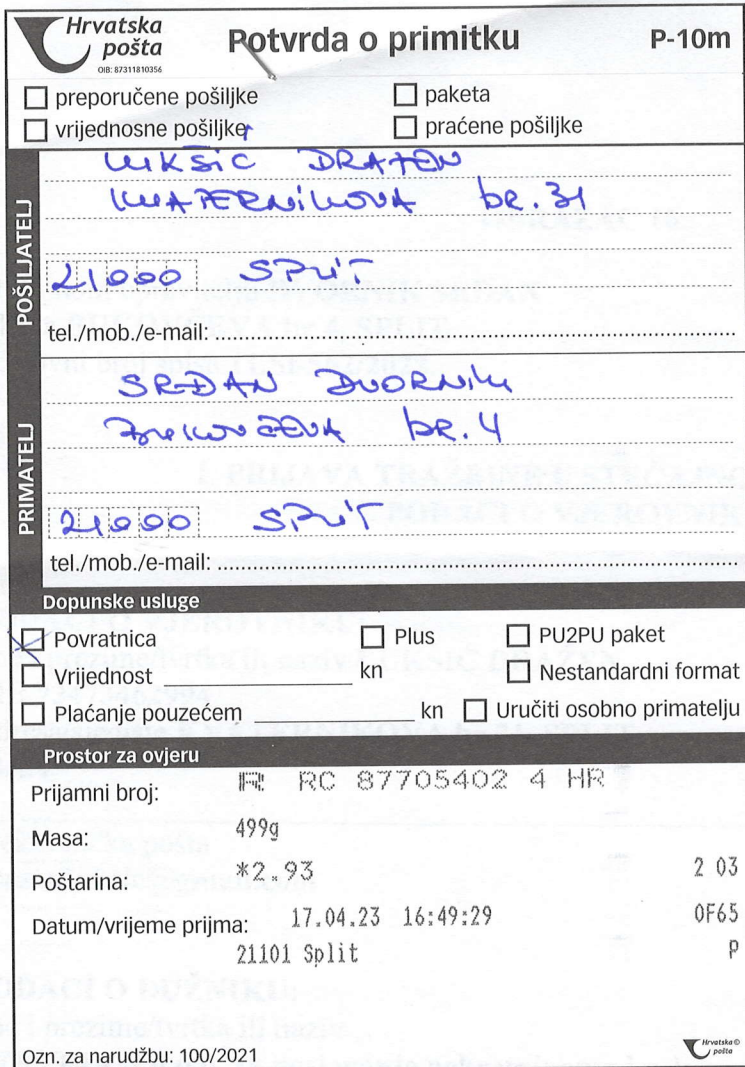 Hrvatska pošta
OIB: 87311810356
Potvrda o primitku
P-10m
preporučene pošiljke
paketa
vrijednosne pošiljke
praćene pošiljke
POŠILJATELJ
UKSIĆ DRAŽEN
br. 31
21000 SPLIT
tel./mob./e-mail:
PRIMATELJ
SRĐAN DVORNIK
BR. 4
21000 SPLIT
tel./mob./e-mail:
Dopunske usluge
Povratnica
Plus
PU2PU paket
Vrijednost kn
Nestandardni format
Plaćanje pouzećem kn
Uručiti osobno primatelju
Prostor za ovjeru
Prijamni broj: R RC 87705402 4 HR
Masa: 499g
Poštarina: *2.93 2 03
Datum/vrijeme prijma: 17.04.23 16:49:29 0F65
21101 Split P
Ozn. za narudžbu: 100/2021
Hrvatska pošta